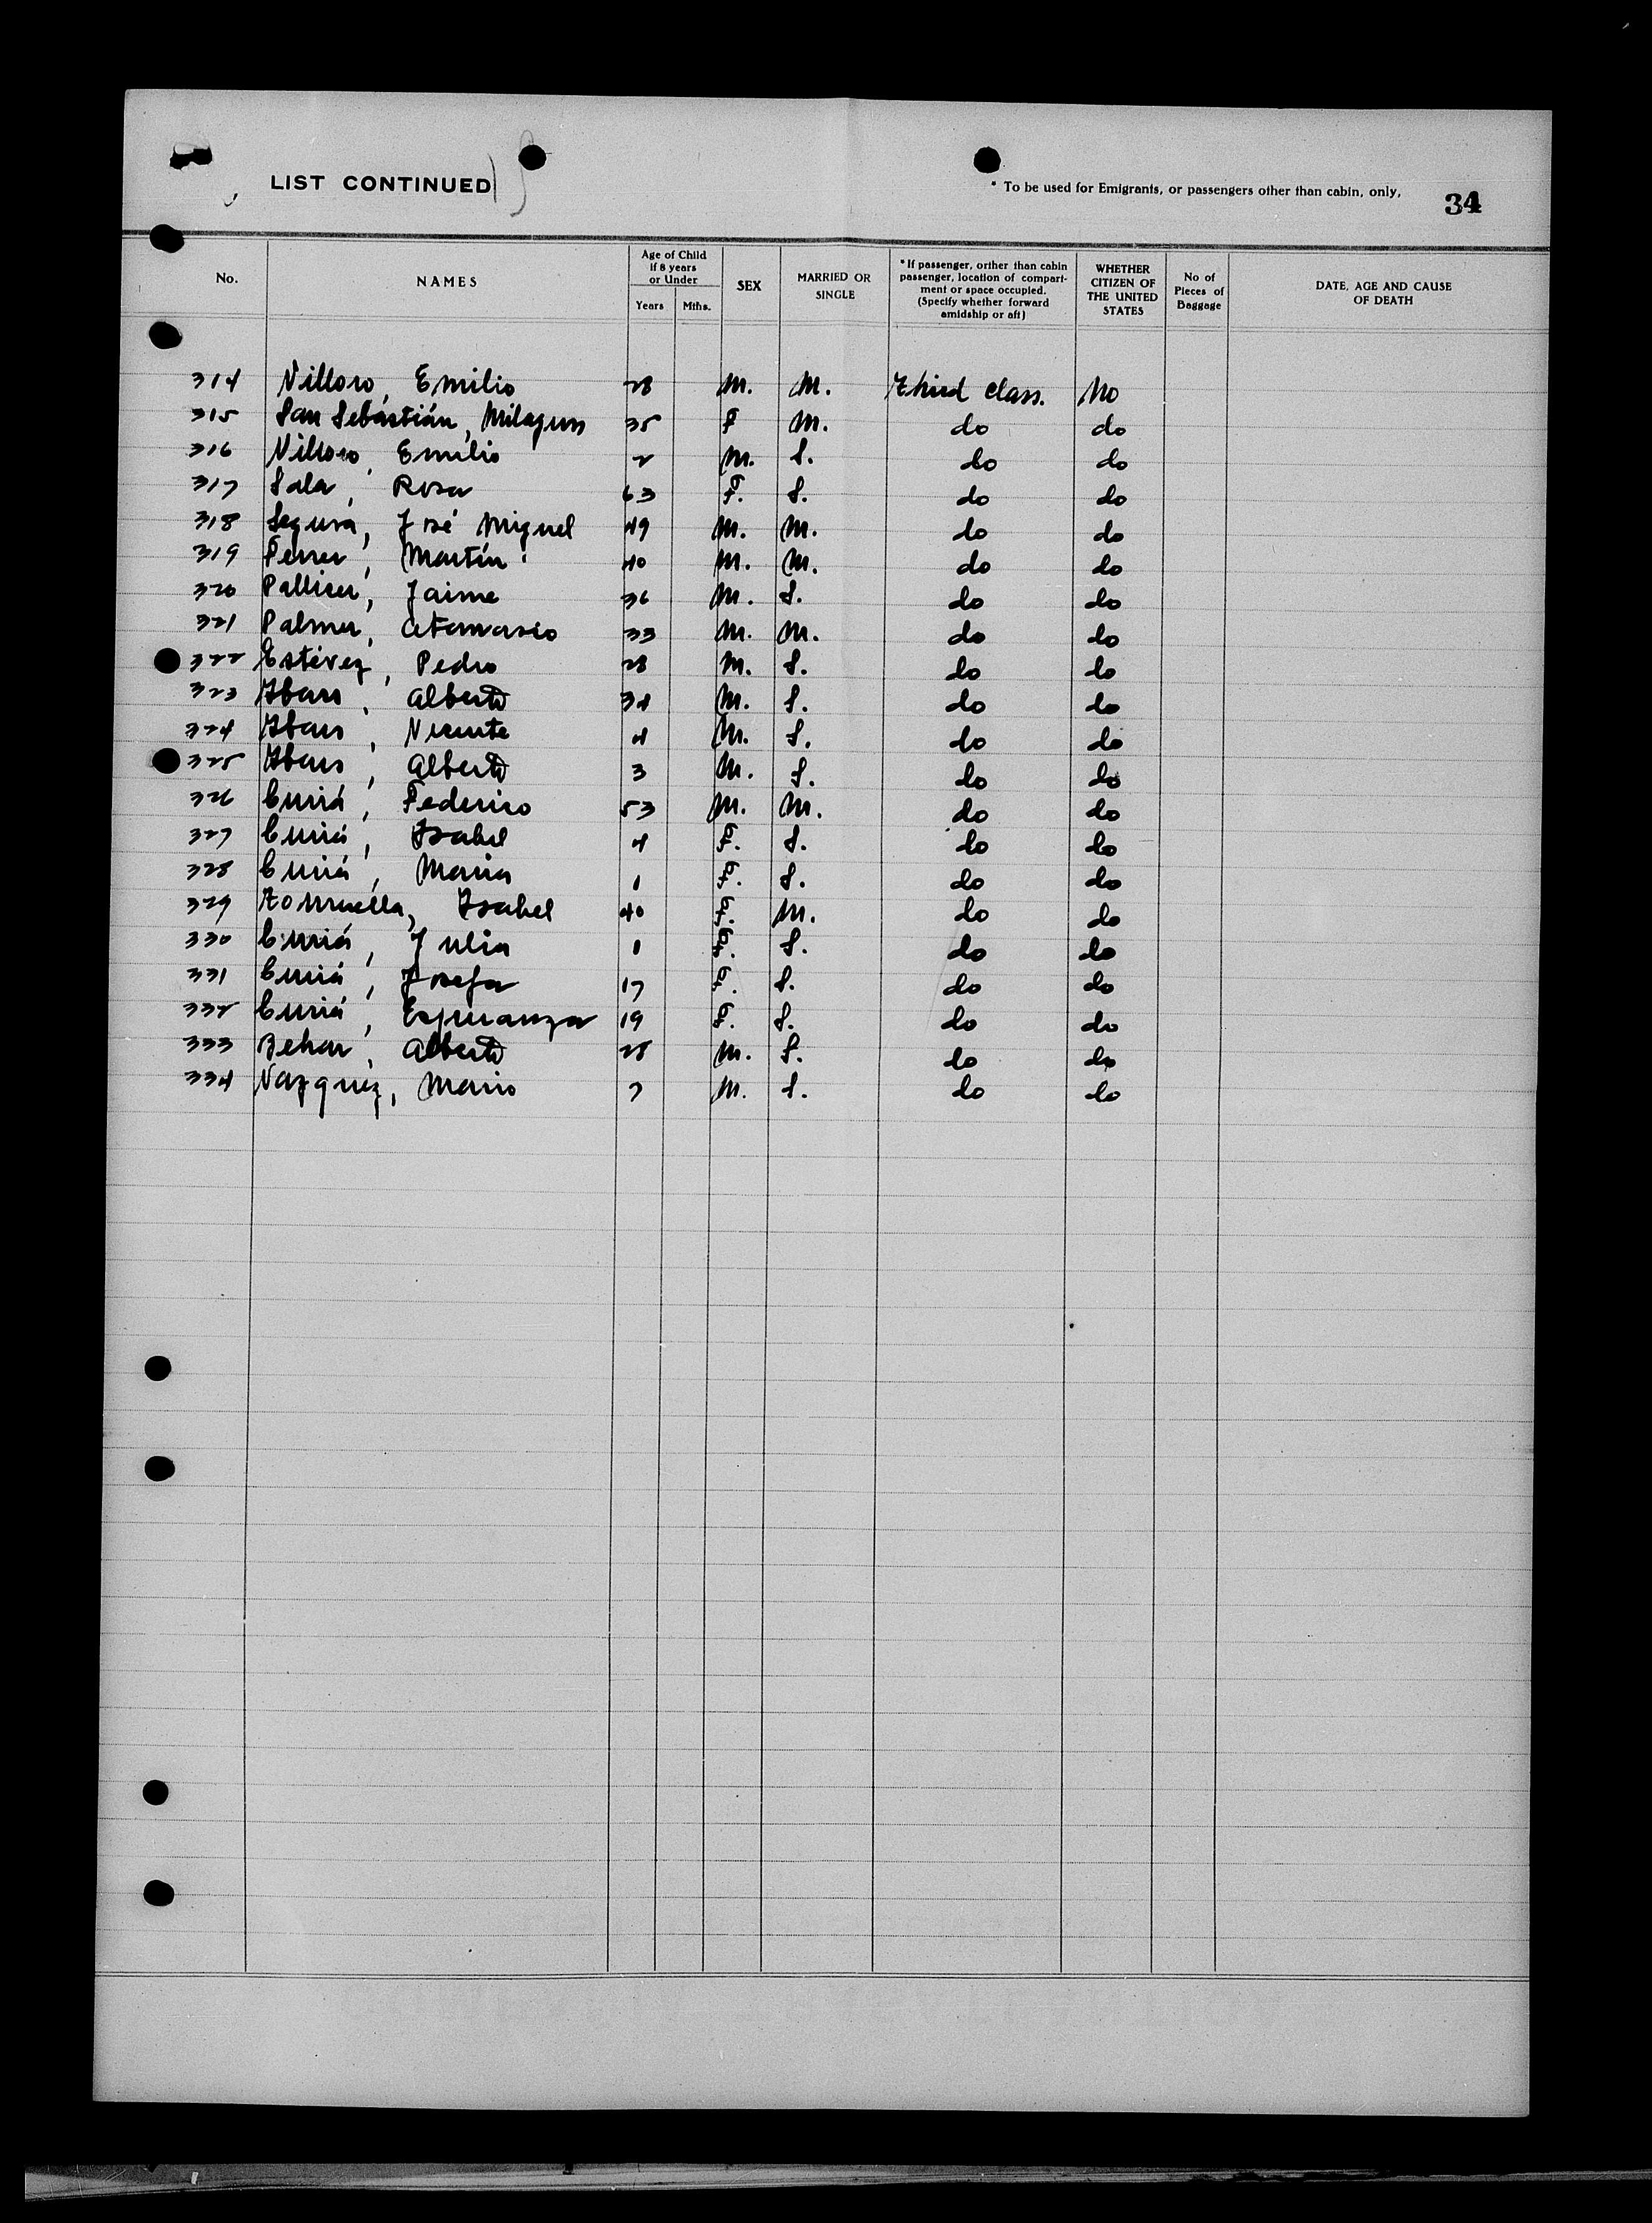 LIST CONTINUED
* To be used for Emigrants, or passengers other than cabin, only,
34
No.
NAMES
Age of Child
if 8 years
or Under
Years
Mths.
SEX
MARRIED OR
SINGLE
* If passenger, orther than cabin
passenger, location of compart-
ment or space occupied.
(Specify whether forward
amidship or aft)
WHETHER
CITIZEN OF
THE UNITED
STATES
No of
Pieces of
Baggage
DATE, AGE AND CAUSE
OF DEATH
314 Villoro, Emilio 28 M. M. Third class. No
315 San Sebastián, Milagros 35 F M. do do
316 Villoro, Emilio 2 M. S. do do
317 Sala, Rosa 63 F. S. do do
318 Segura, José Miguel 49 M. M. do do
319 Ferrer, Martín 40 M. M. do do
320 Pallicer, Jaime 36 M. S. do do
321 Palmer, Atanasio 33 M. M. do do
322 Estévez, Pedro 28 M. S. do do
323 Ibars, Alberto 34 M. S. do do
324 Ibars, Vicente 4 M. S. do do
325 Ibars, Alberto 3 M. S. do do
326 Curiá, Federico 53 M. M. do do
327 Curiá, Isabel 4 F. S. do do
328 Curiá, Maria 1 F. S. do do
329 Isabel 40 F. M. do do
330 Curiá, Julia 1 F. S. do do
331 Curiá, Josefa 17 F. S. do do
332 Curiá, Esperanza 19 F. S. do do
333 Behar, Alberto 28 M. S. do do
334 Vazquez, Mario 7 M. S. do do